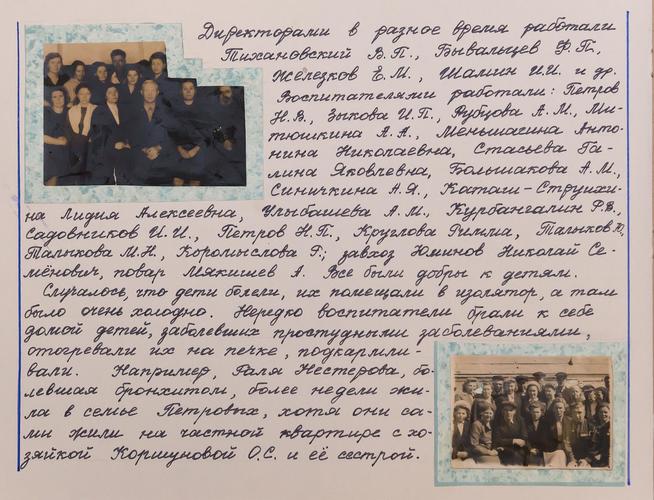 Директорами в разное время работали
Тихановский В.П., Бывальцев Ф.П.,
Железков Е.М., Шамин И.И. и др.
Воспитателями работали: Петров
Н.В., Зыкова И.П., Рубцова А.М., Ми-
тюшкина А.А., Меньшагина Анто-
нина Николаевна, Стасьева Га-
лина Яковлевна, Большакова А.М.,
Синичкина А.Я., Каташ-Стручи-
на Лидия Алексеевна, Улыбашева А.М., Курбангалин Р.В.,
Садовников И.И., Петров Н.П., Круглова Римма, Талыков Ю,
Талыкова М.Н., Коромыслова Г.; завхоз Юминов Николай Се-
мёнович, повар Мякишев А. Все были добры к детям.
Случалось, что дети болели, их помещали в изолятор, а там
было очень холодно. Нередко воспитатели брали к себе
домой детей, заболевших простудными заболеваниями,
отогревали их на печке, подкармли-
вали. Например, Галя Нестерова, бо-
левшая бронхитом, более недели жи-
ла в семье Петровых, хотя они са-
ми жили на частной квартире с хо-
зяйкой Коршуновой О.С. и её сестрой.